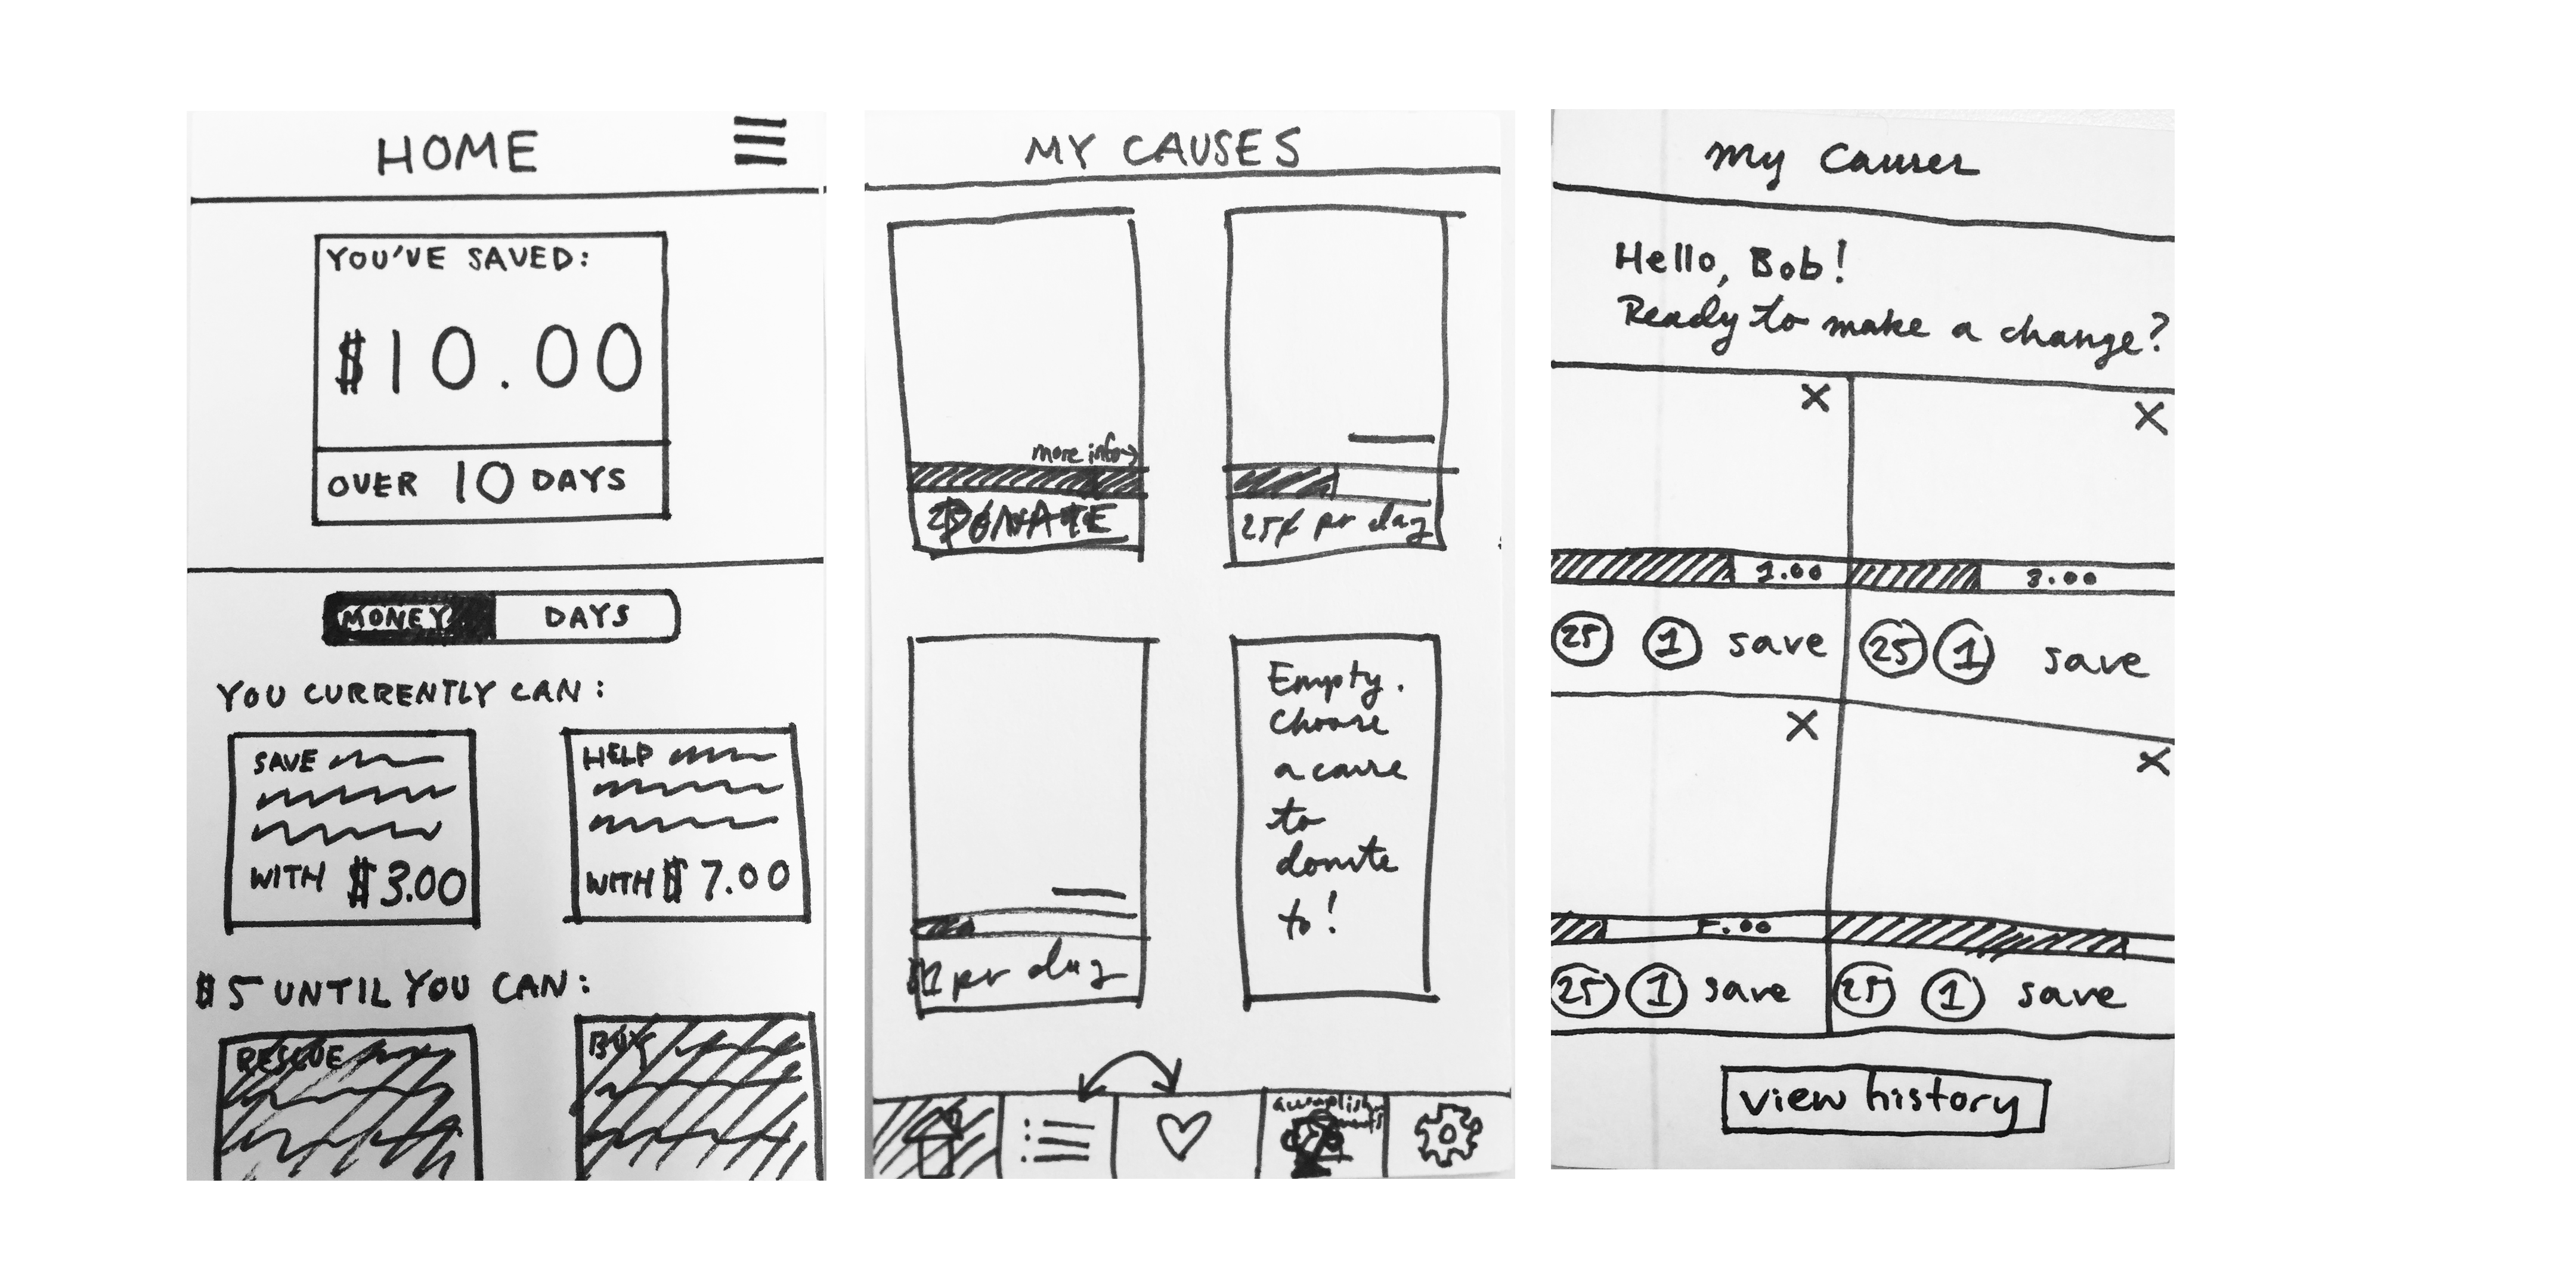 HOME
YOU'VE SAVED:
$10.00
OVER 10 DAYS
MONEY DAYS
YOU CURRENTLY CAN:
SAVE
WITH $3.00
HELP
WITH $7.00
$5 UNTIL YOU CAN:
RESCUE
BUY
MY CAUSES
more info
DONATE
25¢ pr day
$1 pr day
Empty.
Choose
a cause
to
donate
to!
accomplish
ments
my causes
Hello, Bob!
Ready to make a change?
X X
1.00 3.00
25 1 save 25 1 save
X X
.00
25 1 save 25 1 save
view history